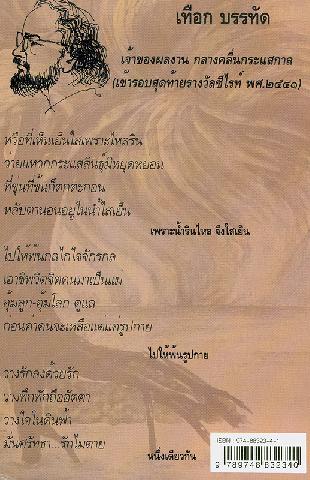 เทือก บรรทัด
เจ้าของผลงาน กลางคลื่นกระแสกาล
(เข้ารอบสุดท้ายรางวัลซีไรท์ พศ.๒๕๔๑)
หรือที่เห็นเย็นใสเพราะไหลริน
ว่ายแหวกกระแสสินธุ์ไหยุดหย่อน
ที่ขุ่นที่ข้นก็ตกตะกอน
หลับตานอนอยู่ในน้ำใสเย็น
เพราะน้ำรินไหล จึงใสเย็น
ไปให้พ้นกลไกใจจักรกล
เอาชีพวิตจิตคนมาเป็นแม่
อุ้มลูก-อุ้มโลก ดูแล
ก่อนตัวตนจะเหลือแต่แค่รูปกาย
ไปให้พ้นรูปกาย
วางรักลงด้วยรัก
วางพึกพักถืออัตตา
วางใจในดินฟ้า
มั่นศรัทธา...รักไม่ตาย
หนึ่งเดียวกัน
ISBN : 974-88323-4-1
9 789748 832340